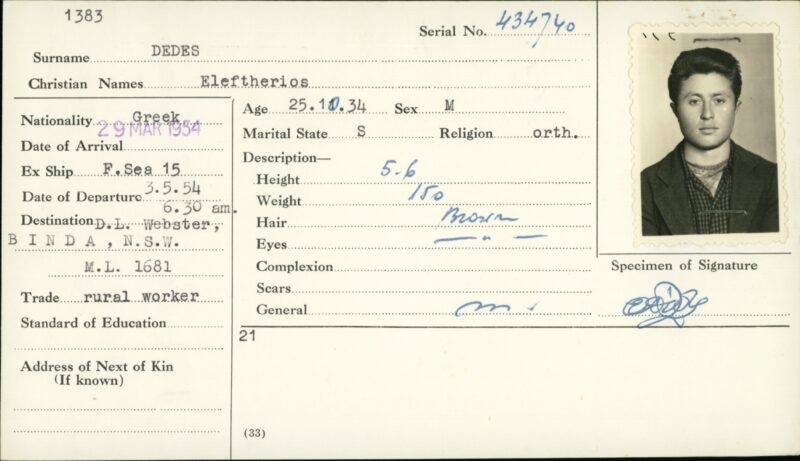 1383
Serial No. 434740
Surname DEDES
Christian Names Eleftherios
Nationality Greek
29 MAR 1954
Date of Arrival
Ex Ship F.Sea 15
Date of Departure 3.5.54
6.30 am.
Destination D.L. Webster,
BINDA, N.S.W.
M.L. 1681
Trade rural worker
Standard of Education
Address of Next of Kin
(If known)
Age 25.10.34 Sex M
Marital State S Religion orth.
Description—
Height 5-6
Weight 150
Hair Brown
Eyes — " —
Complexion
Scars
General
21
(33)
Specimen of Signature